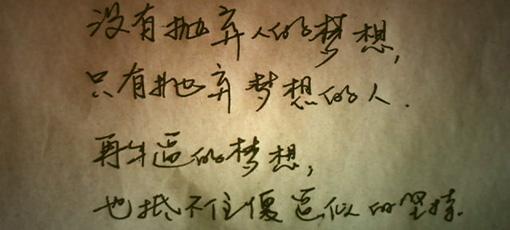 没有抛弃人的梦想,
只有抛弃梦想的人.
再牛逼的梦想,
也抵不住傻逼似的坚持.